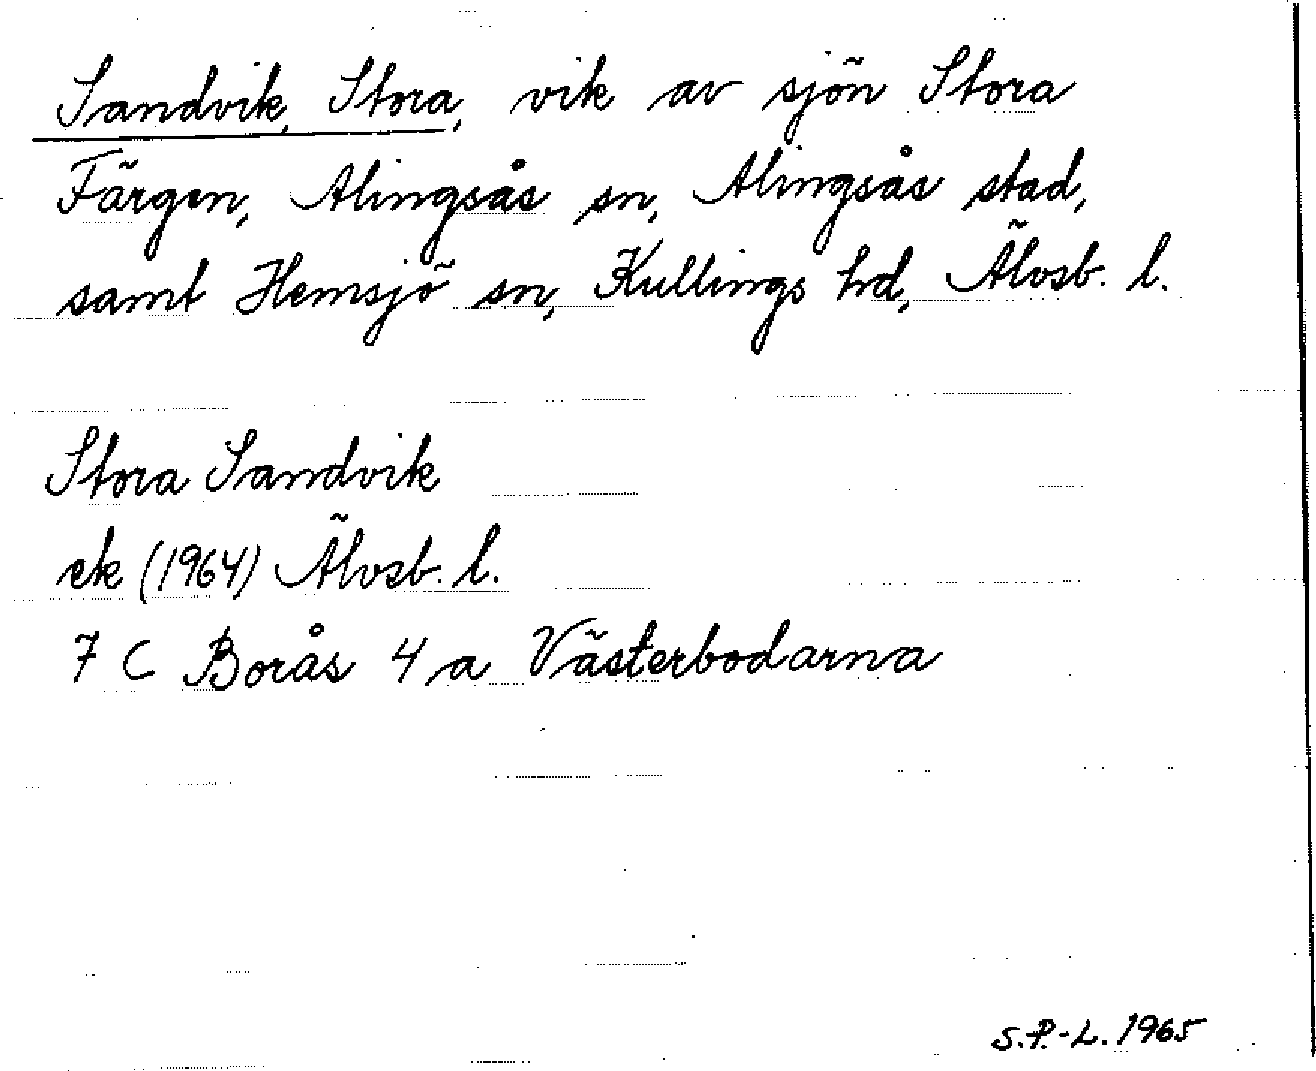 Sandvik, Stora, vik av sjön Stora
Färgen, Alingsås sn, Alingsås stad,
samt Hemsjö sn, Kullings hd, Älvsb. l.
Stora Sandvik
ek (1964) Älvsb. l.
7 C Borås 4 a Västerbodarna
S.P.-L. 1965